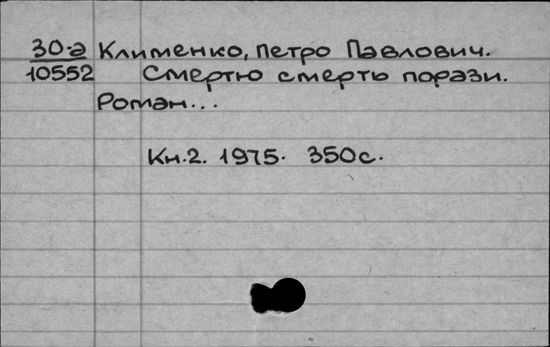 30-а Клименко, Петро Павлович.
10552 Смертю смерть порази.
Роман...
Кн.2. 1975. 350с.